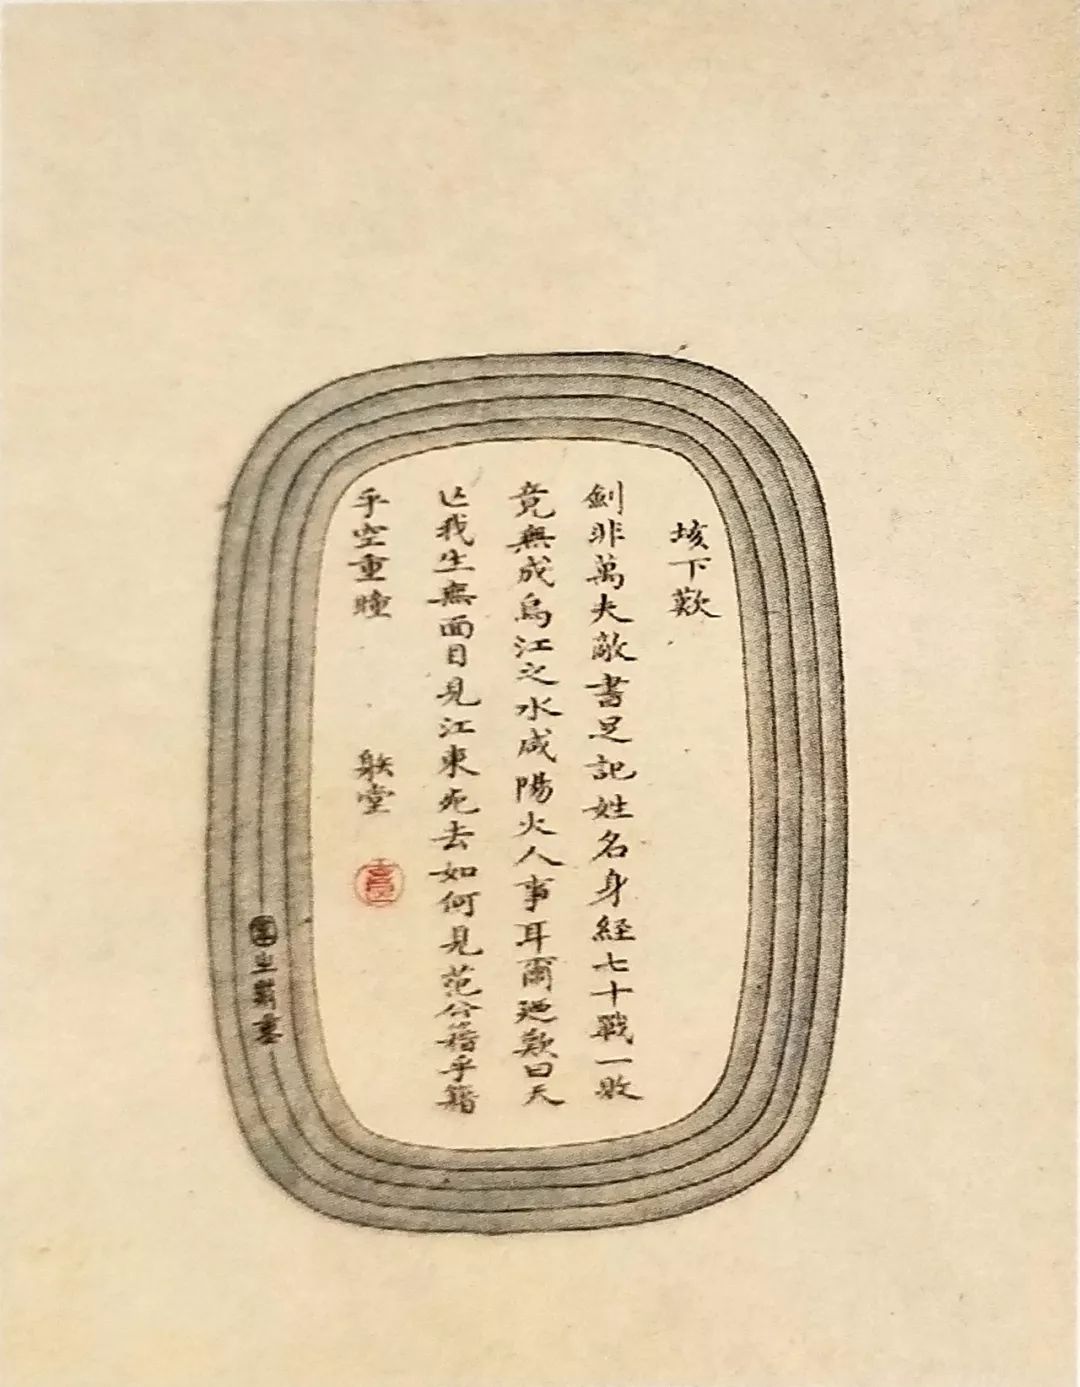 垓下歎
劍非萬夫敵書足記姓名身經七十戰一敗
竟無成烏江之水咸陽火人事耳爾廼歎曰天
亾我生無面目見江東死去如何見范公籍乎籍
乎空重瞳
躲堂